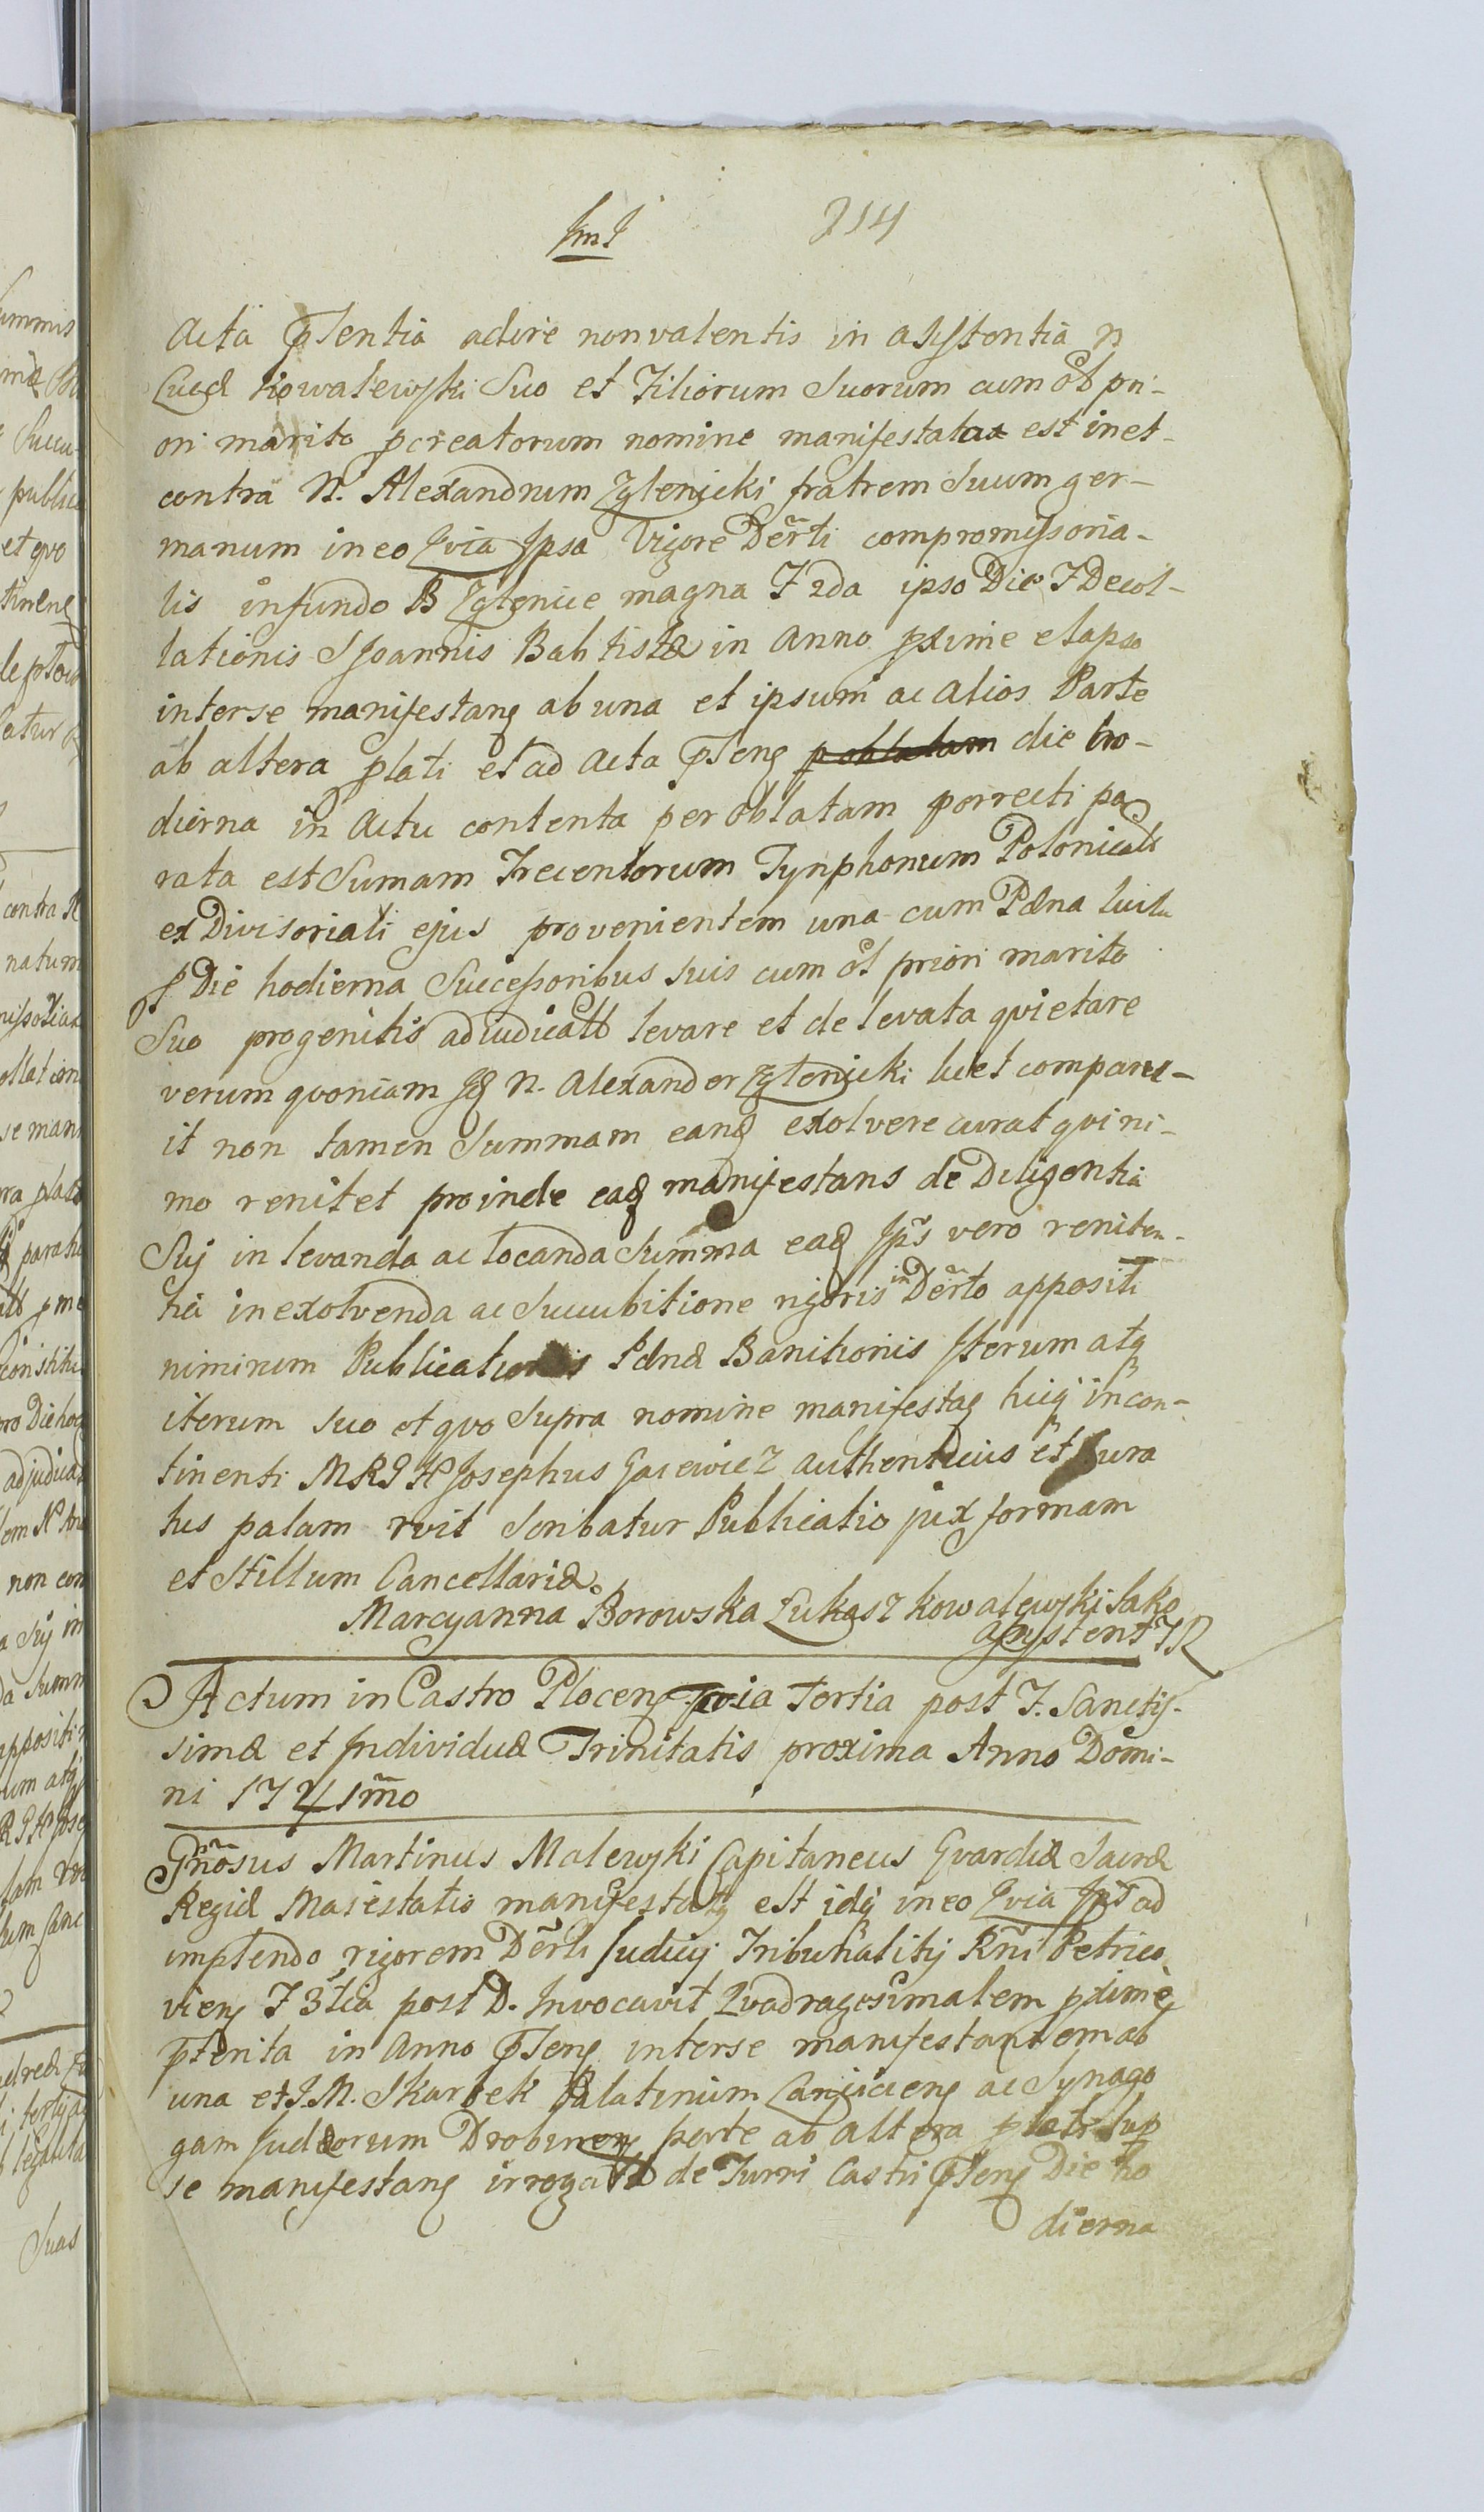 314
Acta pstentia adire non valentis in assistentia N
Lucæ Kowalewski Suo et Filiorum Suorum cum ol pri-
ori marito pcreatorum nomine manifestata est in et
contra N. Alexandrum Zglenicki fratrem Suum ger-
manum in eo Qvia Ipsa Vigore Dẽrti compromissoria-
lis in fundo B Zglenice magna F 2da ipso Die F Decol-
lationis S Joannis Babtistæ in Anno pxime elapso
interse manifestanȩ ab una et ipsum ac alios Parte
ab altera plati et ad Acta pstenȩ die ho-
dierna in Actu contenta per oblatam porrecti pa
rata est Sumam Trecentorum Tynphonum Polonicalt
ex Divisoriali ejus provenientem una cum Pæna luita
p Die hodierna Successoribus suis cum ol priori marito
Suo progenitis adiudicatt levare et de levata qvietare
verum qvoniam N. Alexander Zglenicki licet compares-
it non tamen Summam eanȡ exolvere curat qvini-
mo renitet proinde eaȡ manifestans de Diligentia
Sũj in levanda ac locanda Summa eaȡ Ips̃ vero reniten-
tia in exolvenda ac Succubitione rigoris in Dẽrto appositi
nimirum Publicationis Pænæ Banitionis Iterum atq
iterum suo et qvo supra nomine manifestaȩ huiȷ incon-
tinenti MRGH Josephus Gacewicz authenticus et Jura
tus palam rvit Scribatur Publicatio jux formam
et Stillum Cancellariæ.
Marcyanna Borowska Łukasz Kowalewski Jako
Assystent JR
Actum in Castro Plocenȩ Feria Tertia post F. Sanctis-
simæ et Individuæ Trinitatis proxima Anno Domi-
ni 1741m̃o
Gñosus Martinus Malewski Capitaneus Gvardiæ Sacræ
Regiæ Maiestatis manifestatȩ est idȷ in eo Qvia Ips̃ ad
implendo rigorem Dẽrti Judicij Tribunalitij Rñi Petrico
vienȩ F 3tia post D. Invocavit Qvadragesimalem pxime
pterita in Anno pstenȩ interse manifestantem ab
una et J.M. Skarbek Palatinum Lanciciens ac Synago
gam Judæorum Drobinenȩ parte ab altera plati sup
se manifestanȩ irrogatt de Turri Castri pstenȩ Die ho
dierna